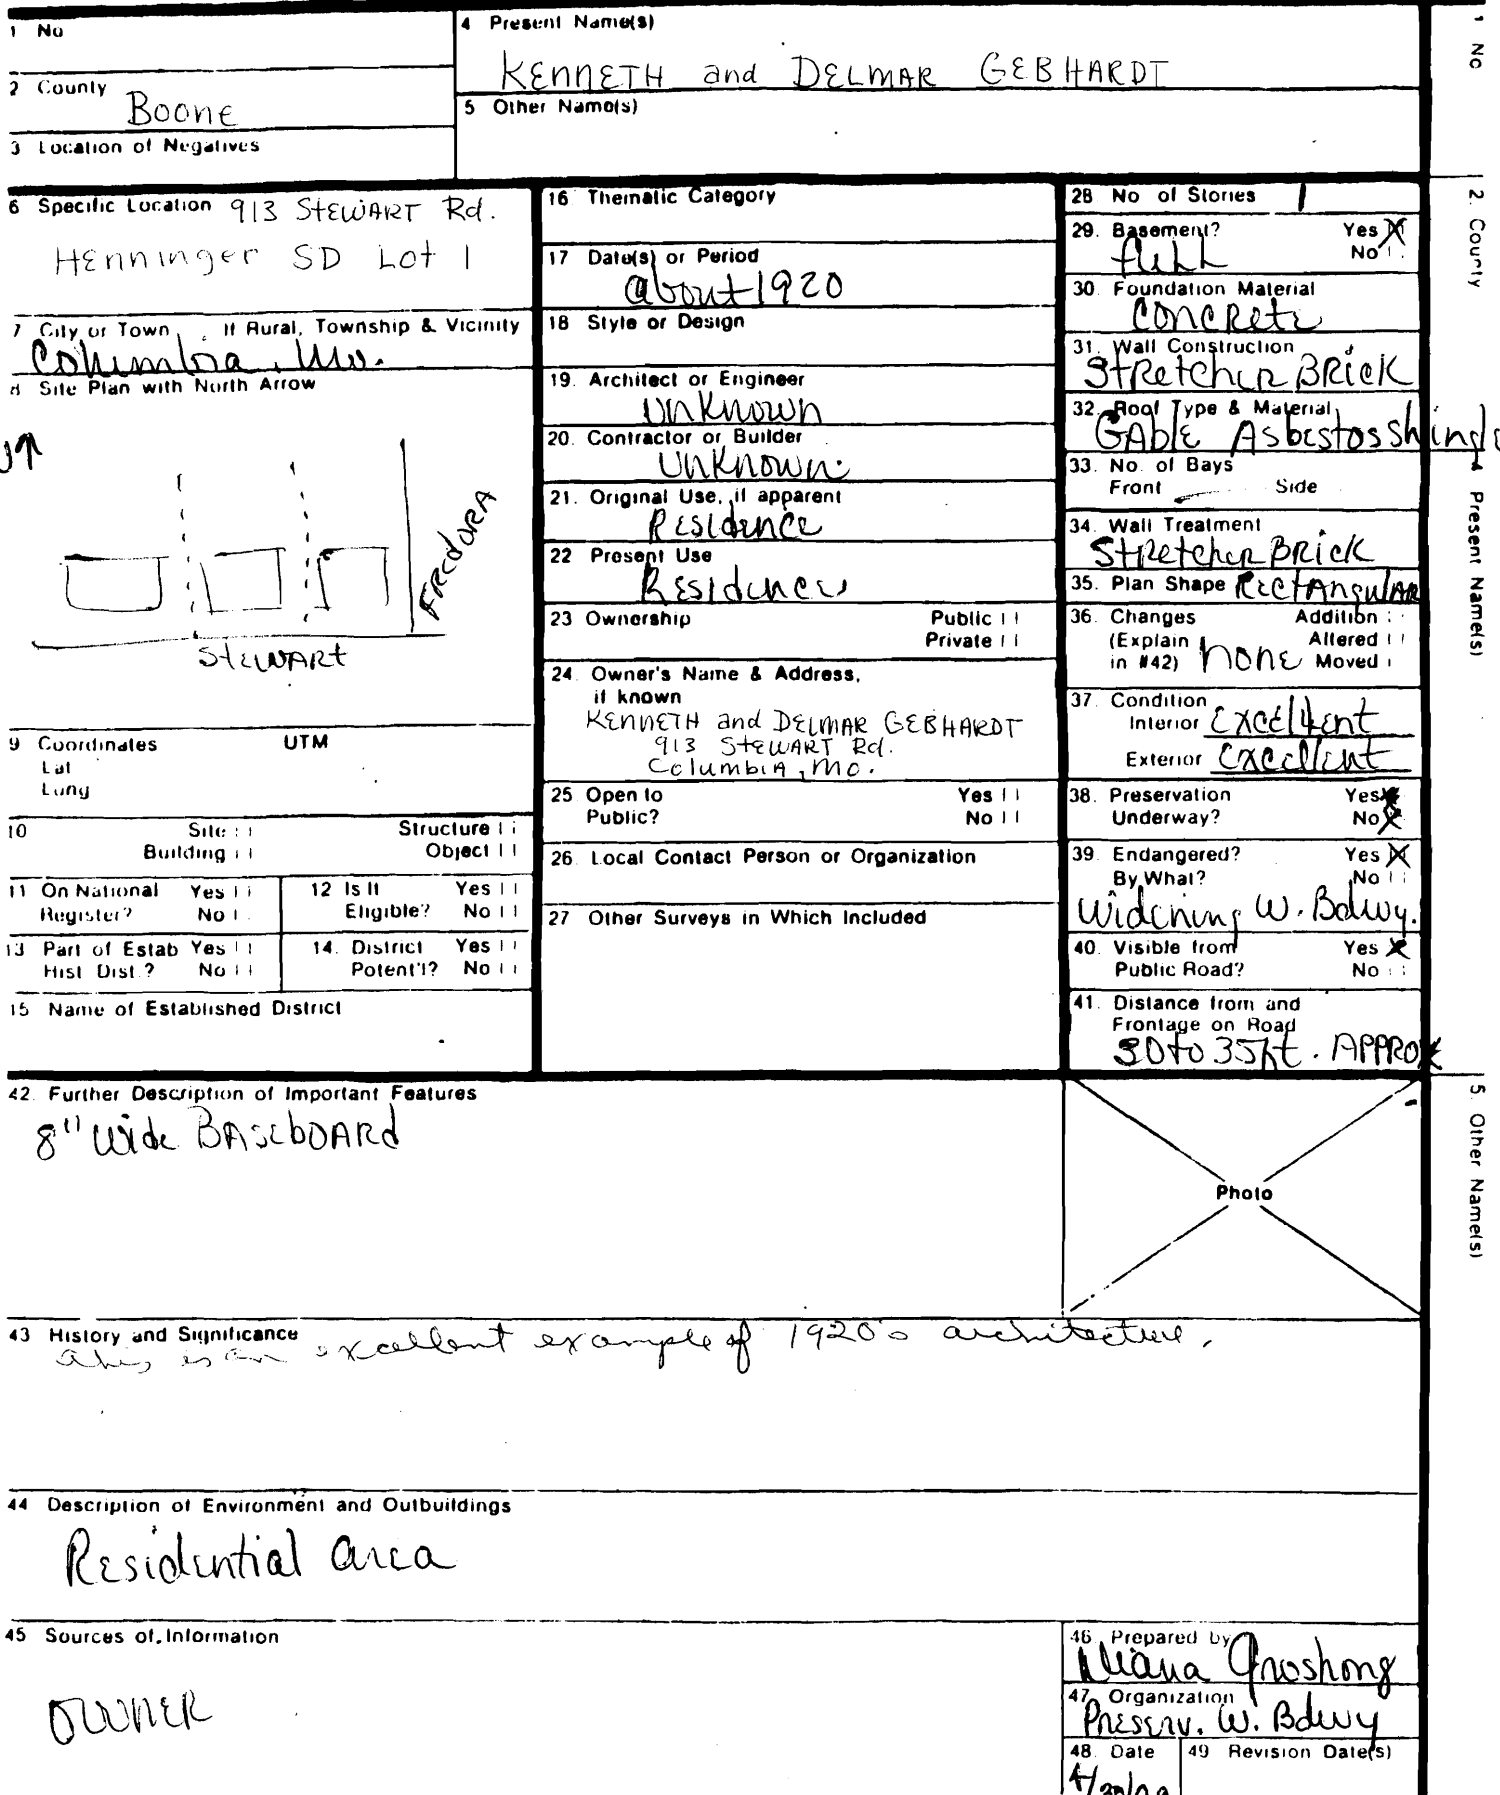 1 No
4 Present Name(s)
KENNETH and DELMAR GEBHARDT
2 County
Boone
5 Other Name(s)
3 Location of Negatives
6 Specific Location 913 STEWART Rd.
Henninger SD Lot 1
7 City or Town If Rural, Township & Vicinity
Columbia, Mo.
8 Site Plan with North Arrow
FREDORA
STEWART
9 Coordinates UTM
Lat
Long
10 Site Structure
Building Object
11 On National Register? Yes No
12 Is It Eligible? Yes No
13 Part of Estab Hist Dist.? Yes No
14. District Potent'l? Yes No
15 Name of Established District
16 Thematic Category
17 Date(s) or Period
about 1920
18 Style or Design
19. Architect or Engineer
Unknown
20. Contractor or Builder
Unknown.
21. Original Use, if apparent
Residence
22 Present Use
Residence
23 Ownership Public
Private
24. Owner's Name & Address,
if known
KENNETH and DELMAR GEBHARDT
913 STEWART Rd.
Columbia, Mo.
25 Open to Yes
Public? No
26. Local Contact Person or Organization
27 Other Surveys in Which Included
28 No of Stories 1
29. Basement? Yes X
full No
30. Foundation Material
CONCRete
31. Wall Construction
Stretcher BRick
32. Roof Type & Material
GAble Asbestos Shingle
33. No. of Bays
Front Side
34. Wall Treatment
Stretcher BRick
35. Plan Shape RectAngulAR
36. Changes Addition
(Explain Altered
in #42) none Moved
37. Condition
Interior Excellent
Exterior Excellent
38. Preservation Yes
Underway? No X
39. Endangered? Yes X
By What? No
Widening W. Bdwy.
40. Visible from Yes X
Public Road? No
41. Distance from and
Frontage on Road
30 to 35 ft. APPROX
42. Further Description of Important Features
8" wide BAseboARd
Photo
43 History and Significance
This is an excellent example of 1920's architecture.
44 Description of Environment and Outbuildings
Residential area
45 Sources of Information
OWNER
46. Prepared by
Diana Groshong
47. Organization
Preserv. W. Bdwy
48. Date 49 Revision Date(s)
1 No
2. County
4 Present Name(s)
5. Other Name(s)